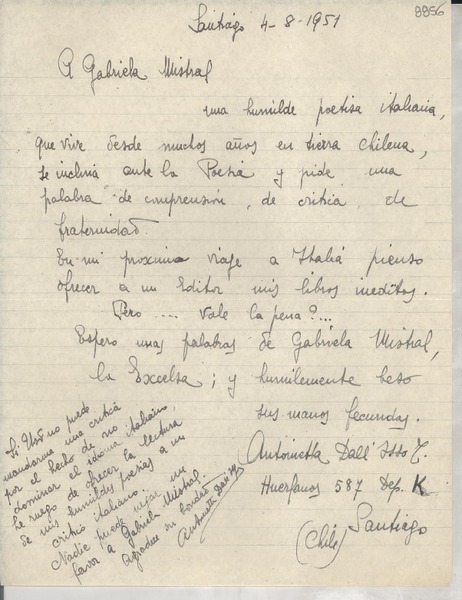 8856
Santiago 4-8-1951
A Gabriela Mistral
una humilde poetisa italiana,
que vive desde muchos años en tierra chilena,
se inclina ante la Poesia y pide una
palabra de comprensión, de critica, de
fraternidad.
En mi proximo viaje a Italia pienso
ofrecer a un Editor mis libros ineditos.
Pero .... vale la pena?...
Espero unas palabras de Gabriela Mistral,
la Excelsa; y humilemente beso
sus manos fecundas.
Antonietta Dall'
Huerfanos 587 Dep. K
Santiago
(Chile)
Si Ud no puede
mandarme una critica
por el hecho de no
dominar el idioma italiano,
le ruego de ofrecer la lectura
de mis humildes poesias a un
critico italiano.
Nadie puede negar un
favor a Gabriela Mistral.
Agradece su bondad